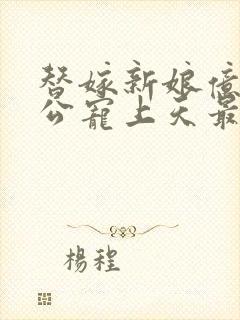 替嫁新娘億
公寵上天最
楊程